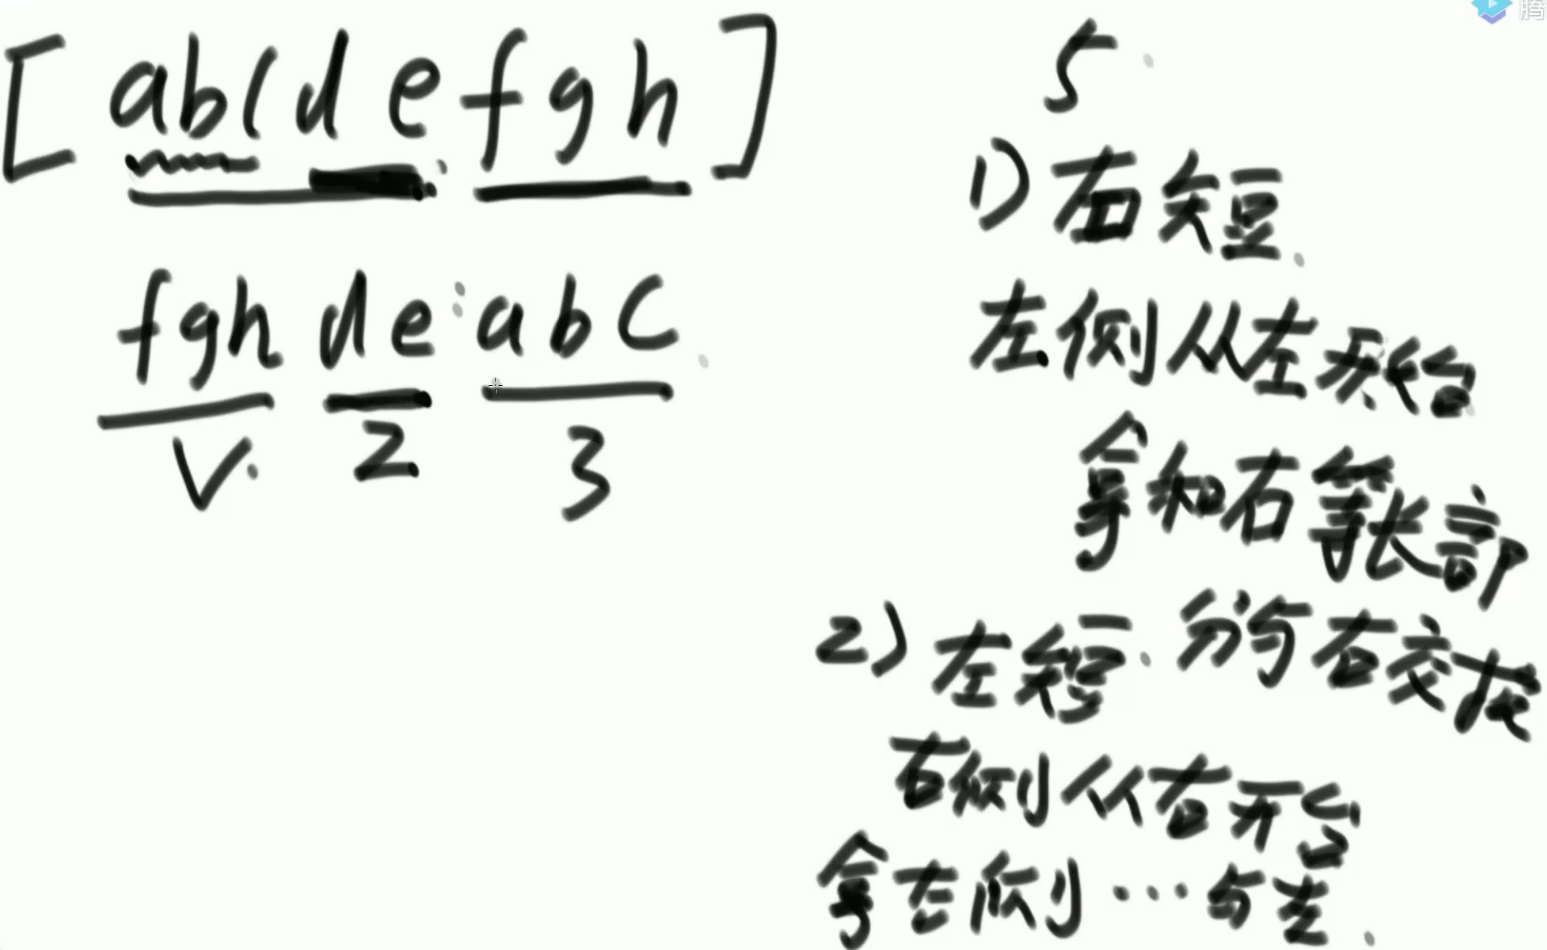 [abcdefgh]
fgh de abc
2
3
5
1)右短
左侧从左开始
拿和右等长部
分与右交换
2)左短
右侧从右开始
拿左侧…与左
腾